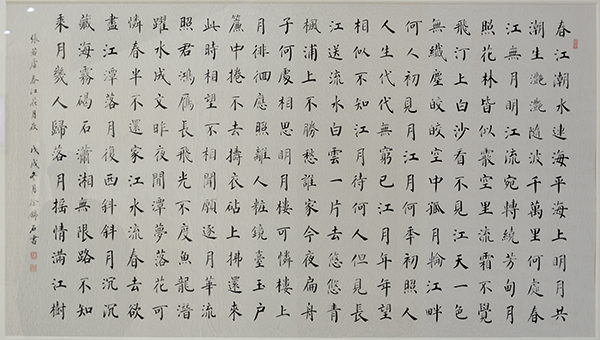 春江潮水連海平海上明月共
潮生灩灩隨波千萬里何處春
江無月明江流宛轉繞芳甸月
照花林皆似霰空里流霜不覺
飛汀上白沙看不見江天一色
無纖塵皎皎空中孤月輪江畔
何人初見月江月何秊初照人
人生代代無窮已江月年年望
相似不知江月待何人但見長
江送流水白雲一片去悠悠青
楓浦上不勝愁誰家今夜扁舟
子何處相思明月樓可憐樓上
月徘徊應照離人粧鏡臺玉戶
簾中捲不去擣衣砧上拂還來
此時相望不相聞願逐月華流
照君鴻雁長飛光不度魚龍潛
躍水成文昨夜閒潭夢落花可
憐春半不還家江水流春去欲
盡江潭落月復西斜斜月沉沉
藏海霧碣石瀟湘無限路不知
乘月幾人歸落月搖情滿江樹
張若虛春江花月夜 戊戌 月徐 石書